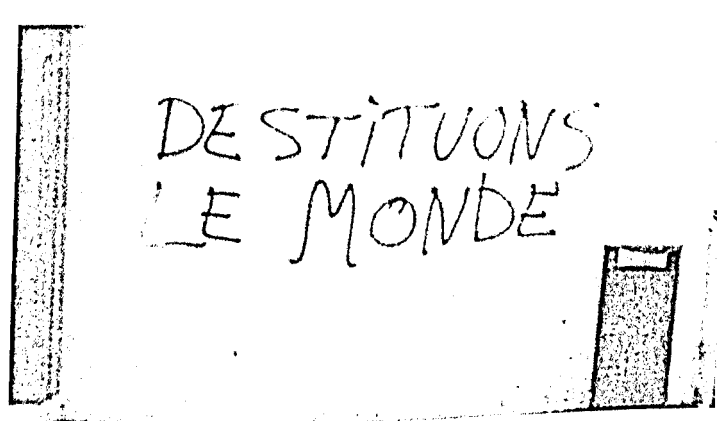 DESTiTUONS
LE MONDE